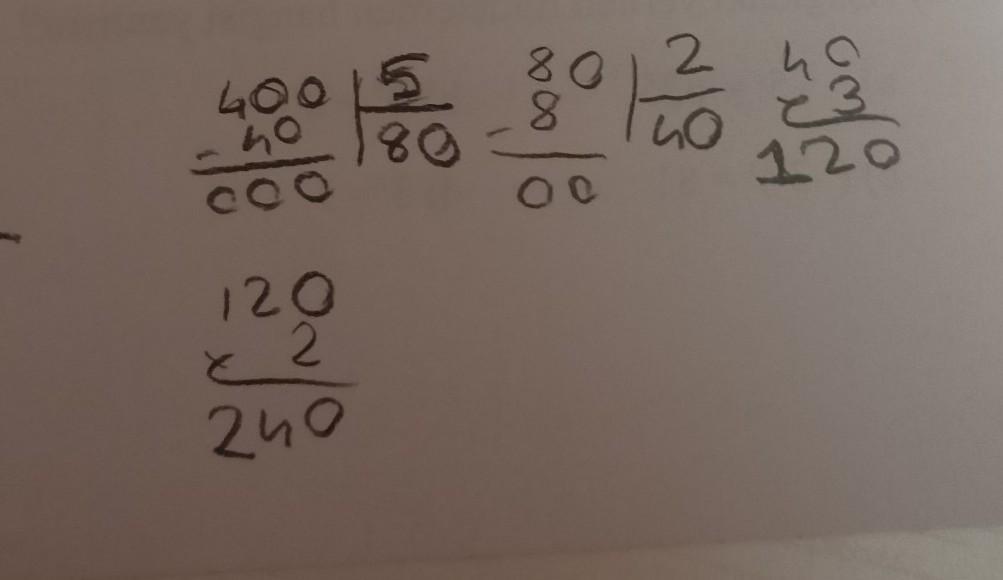 400 | 5 80 | 2 40
- 40 | 80 - 8 | 40 x 3
000 00 120
120
x 2
240